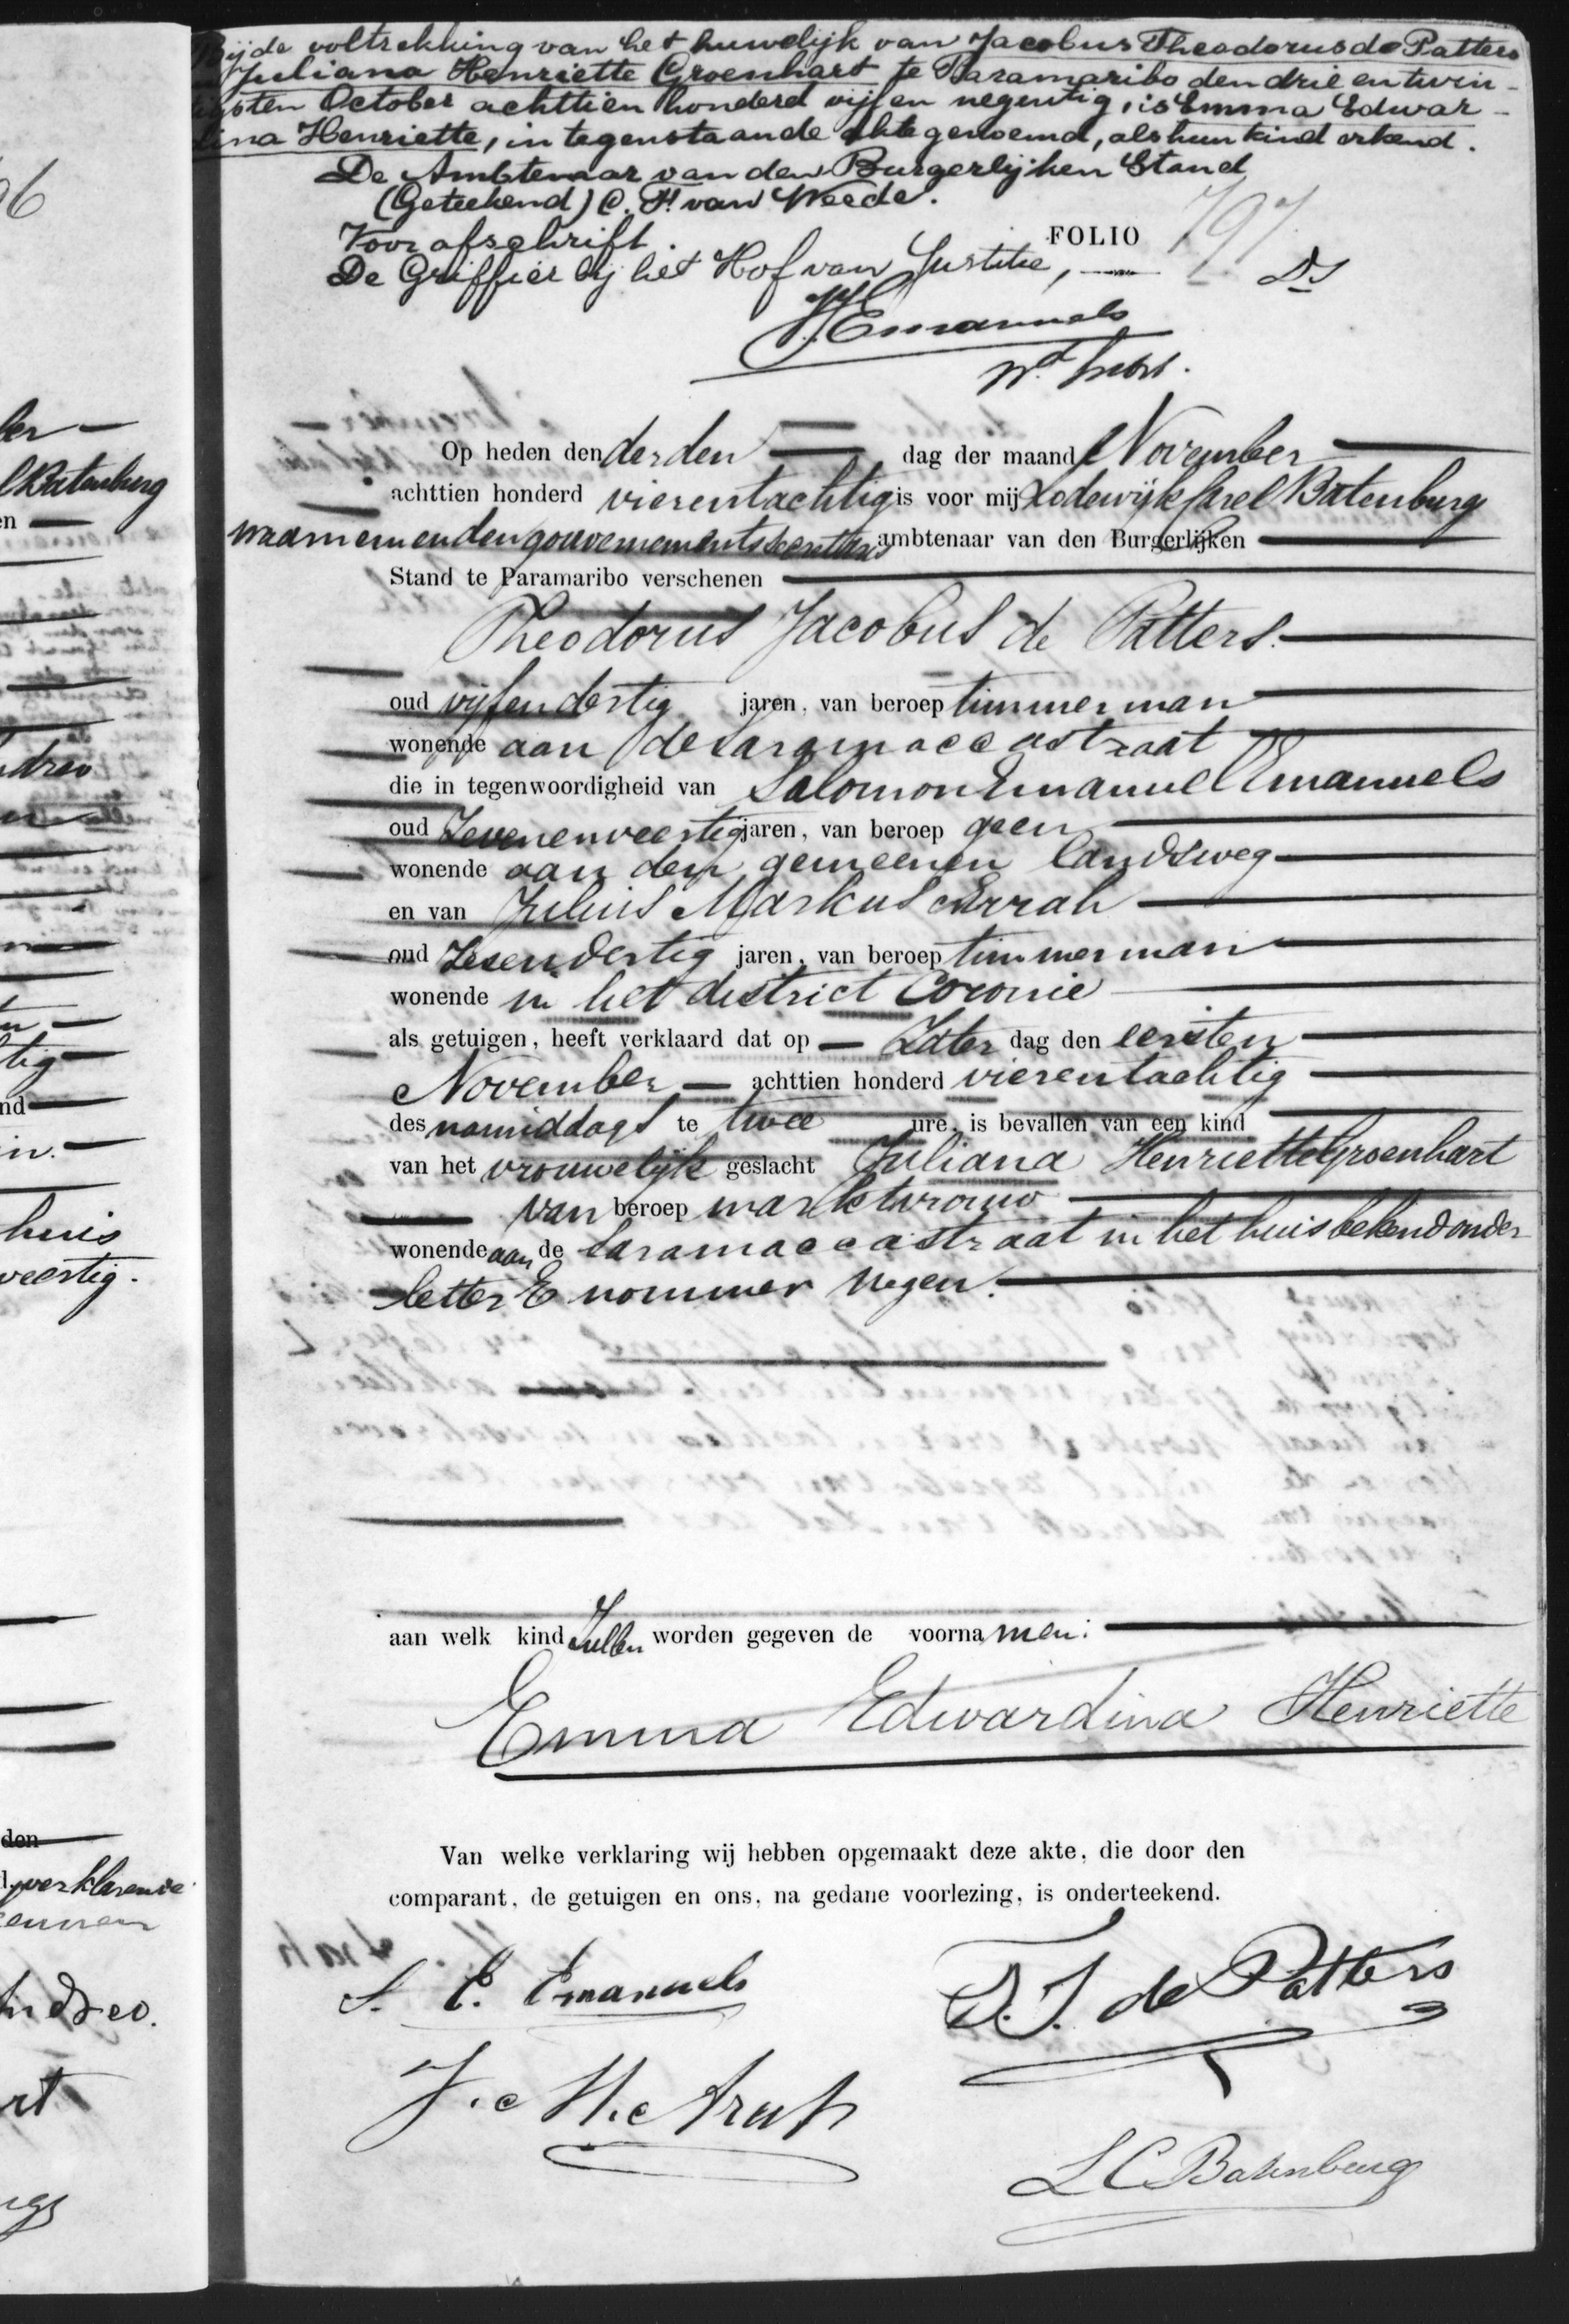 Bij de voltrekking van het huwelijk van Jacobus Theodorus de Patters
Juliana Henriette Groenhart te Paramaribo den drie en twin-
tigsten October achttien honderd vijf en negentig, is Emma Edwar-
dina Henriette, in tegenstaande akte genoemd, als hun kind erkend.
De Ambtenaar van den Burgerlijken Stand
(Geteekend) C. F. van Weede.
Voor afschrift.
De Griffier bij het Hof van Justitie,
FOLIO 797.
Emanuels
Op heden den derden dag der maand November
achttien honderd vierentachtig is voor mij Lodewijk Carel Batenburg
waarnemenden gouvernements secretaris ambtenaar van den Burgerlijken
Stand te Paramaribo verschenen
Theodorus Jacobus de Patters.
oud vijfendertig jaren, van beroep timmerman
wonende aan de Saramaccastraat
die in tegenwoordigheid van Salomon Emanuel Emanuels
oud Zevenenveertig jaren, van beroep geen
wonende aan den gemeenen landsweg
en van Julius Markus Arrah
oud Zesendertig jaren, van beroep timmerman
wonende in het district Coronie
als getuigen, heeft verklaard dat op Zater dag den eersten
November achttien honderd vierentachtig
des namiddags te twee ure, is bevallen van een kind
van het vrouwelijk geslacht Juliana Henriette Groenhart
van beroep marktvrouw
wonende aan de Saramaccastraat in het huis bekend onder
letter E nommer negen.
aan welk kind Zullen worden gegeven de voorna men:
Emma Edwardina Henriette
Van welke verklaring wij hebben opgemaakt deze akte, die door den
comparant, de getuigen en ons, na gedane voorlezing, is onderteekend.
S. E. Emanuels
T. J. de Patters
J. M. Arrah
L C Batenburg